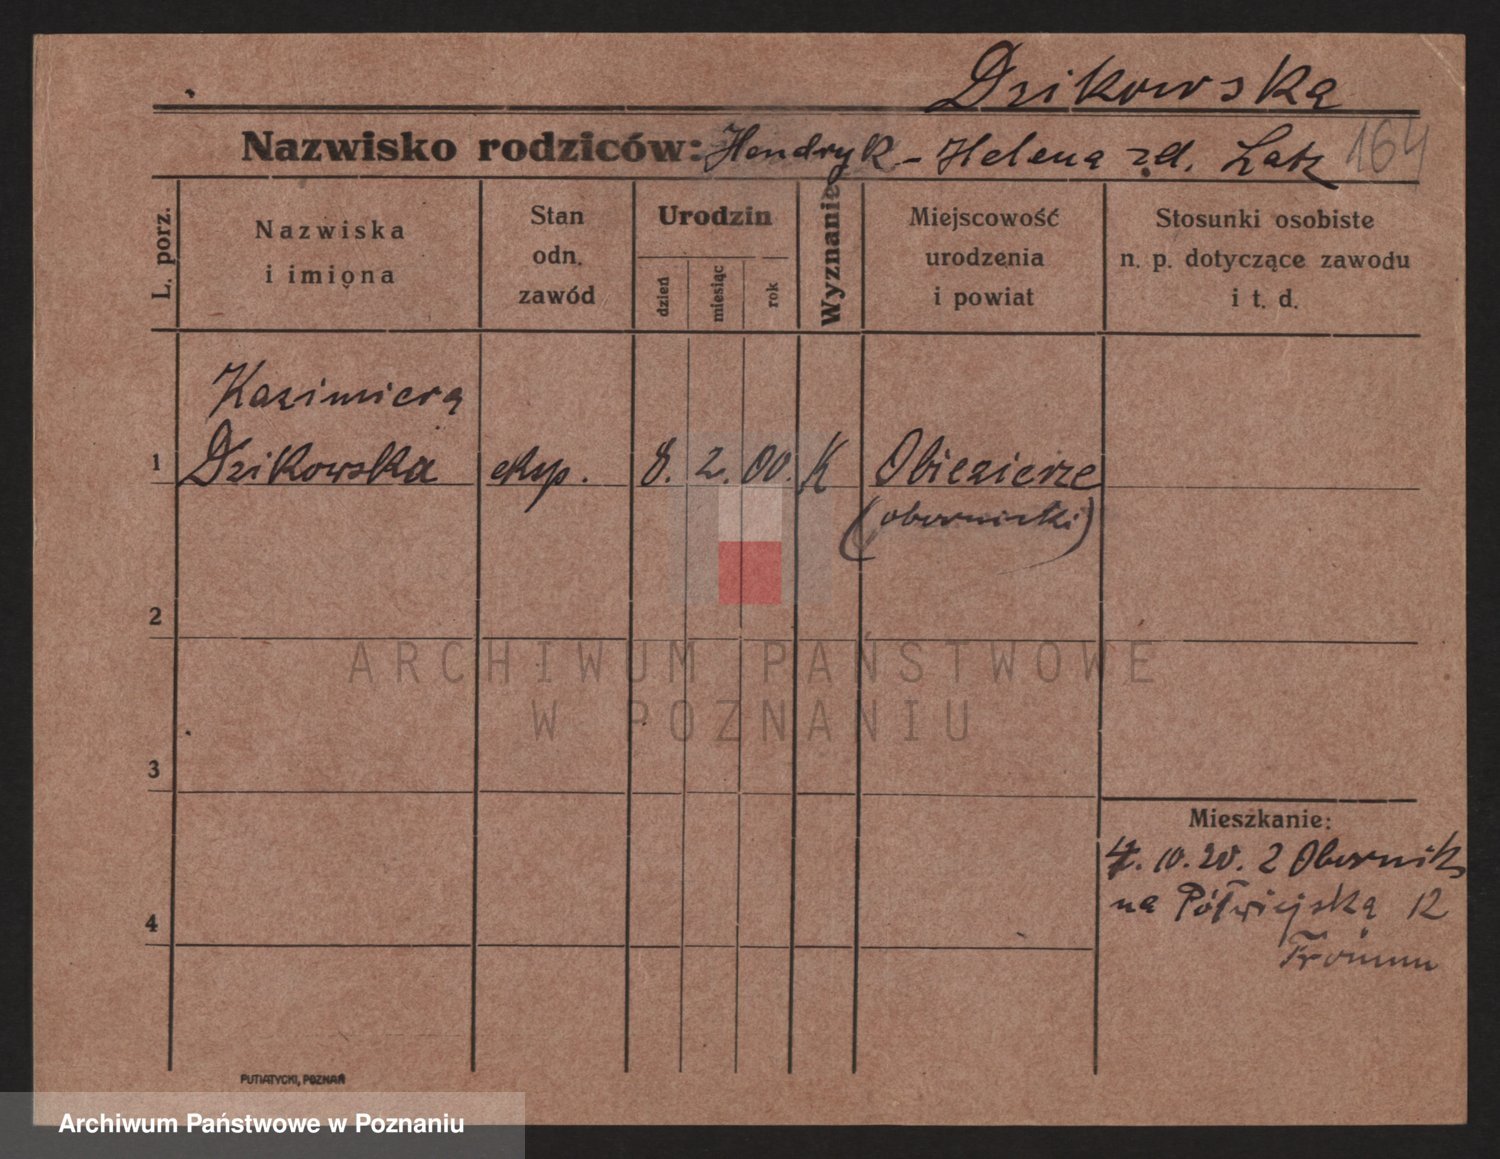 Dzikowska
Nazwisko rodziców: Hendryk - Helena zd. Latz 164
L. porz.
Nazwiska
i imiona
Stan
odn.
zawód
Urodzin
dzień
miesiąc
rok
Wyznanie
Miejscowość
urodzenia
i powiat
Stosunki osobiste
n. p. dotyczące zawodu
i t. d.
Kazimiera
1 Dzikowska eksp. 8. 2. 00. K Obiezierze
(obornicki)
2
ARCHIWUM PAŃSTWOWE
W POZNANIU
3
Mieszkanie:
4. 10. 20. z Obornik
na Półwiejską 12
4
PUTIATYCKI, POZNAŃ
Archiwum Państwowe w Poznaniu